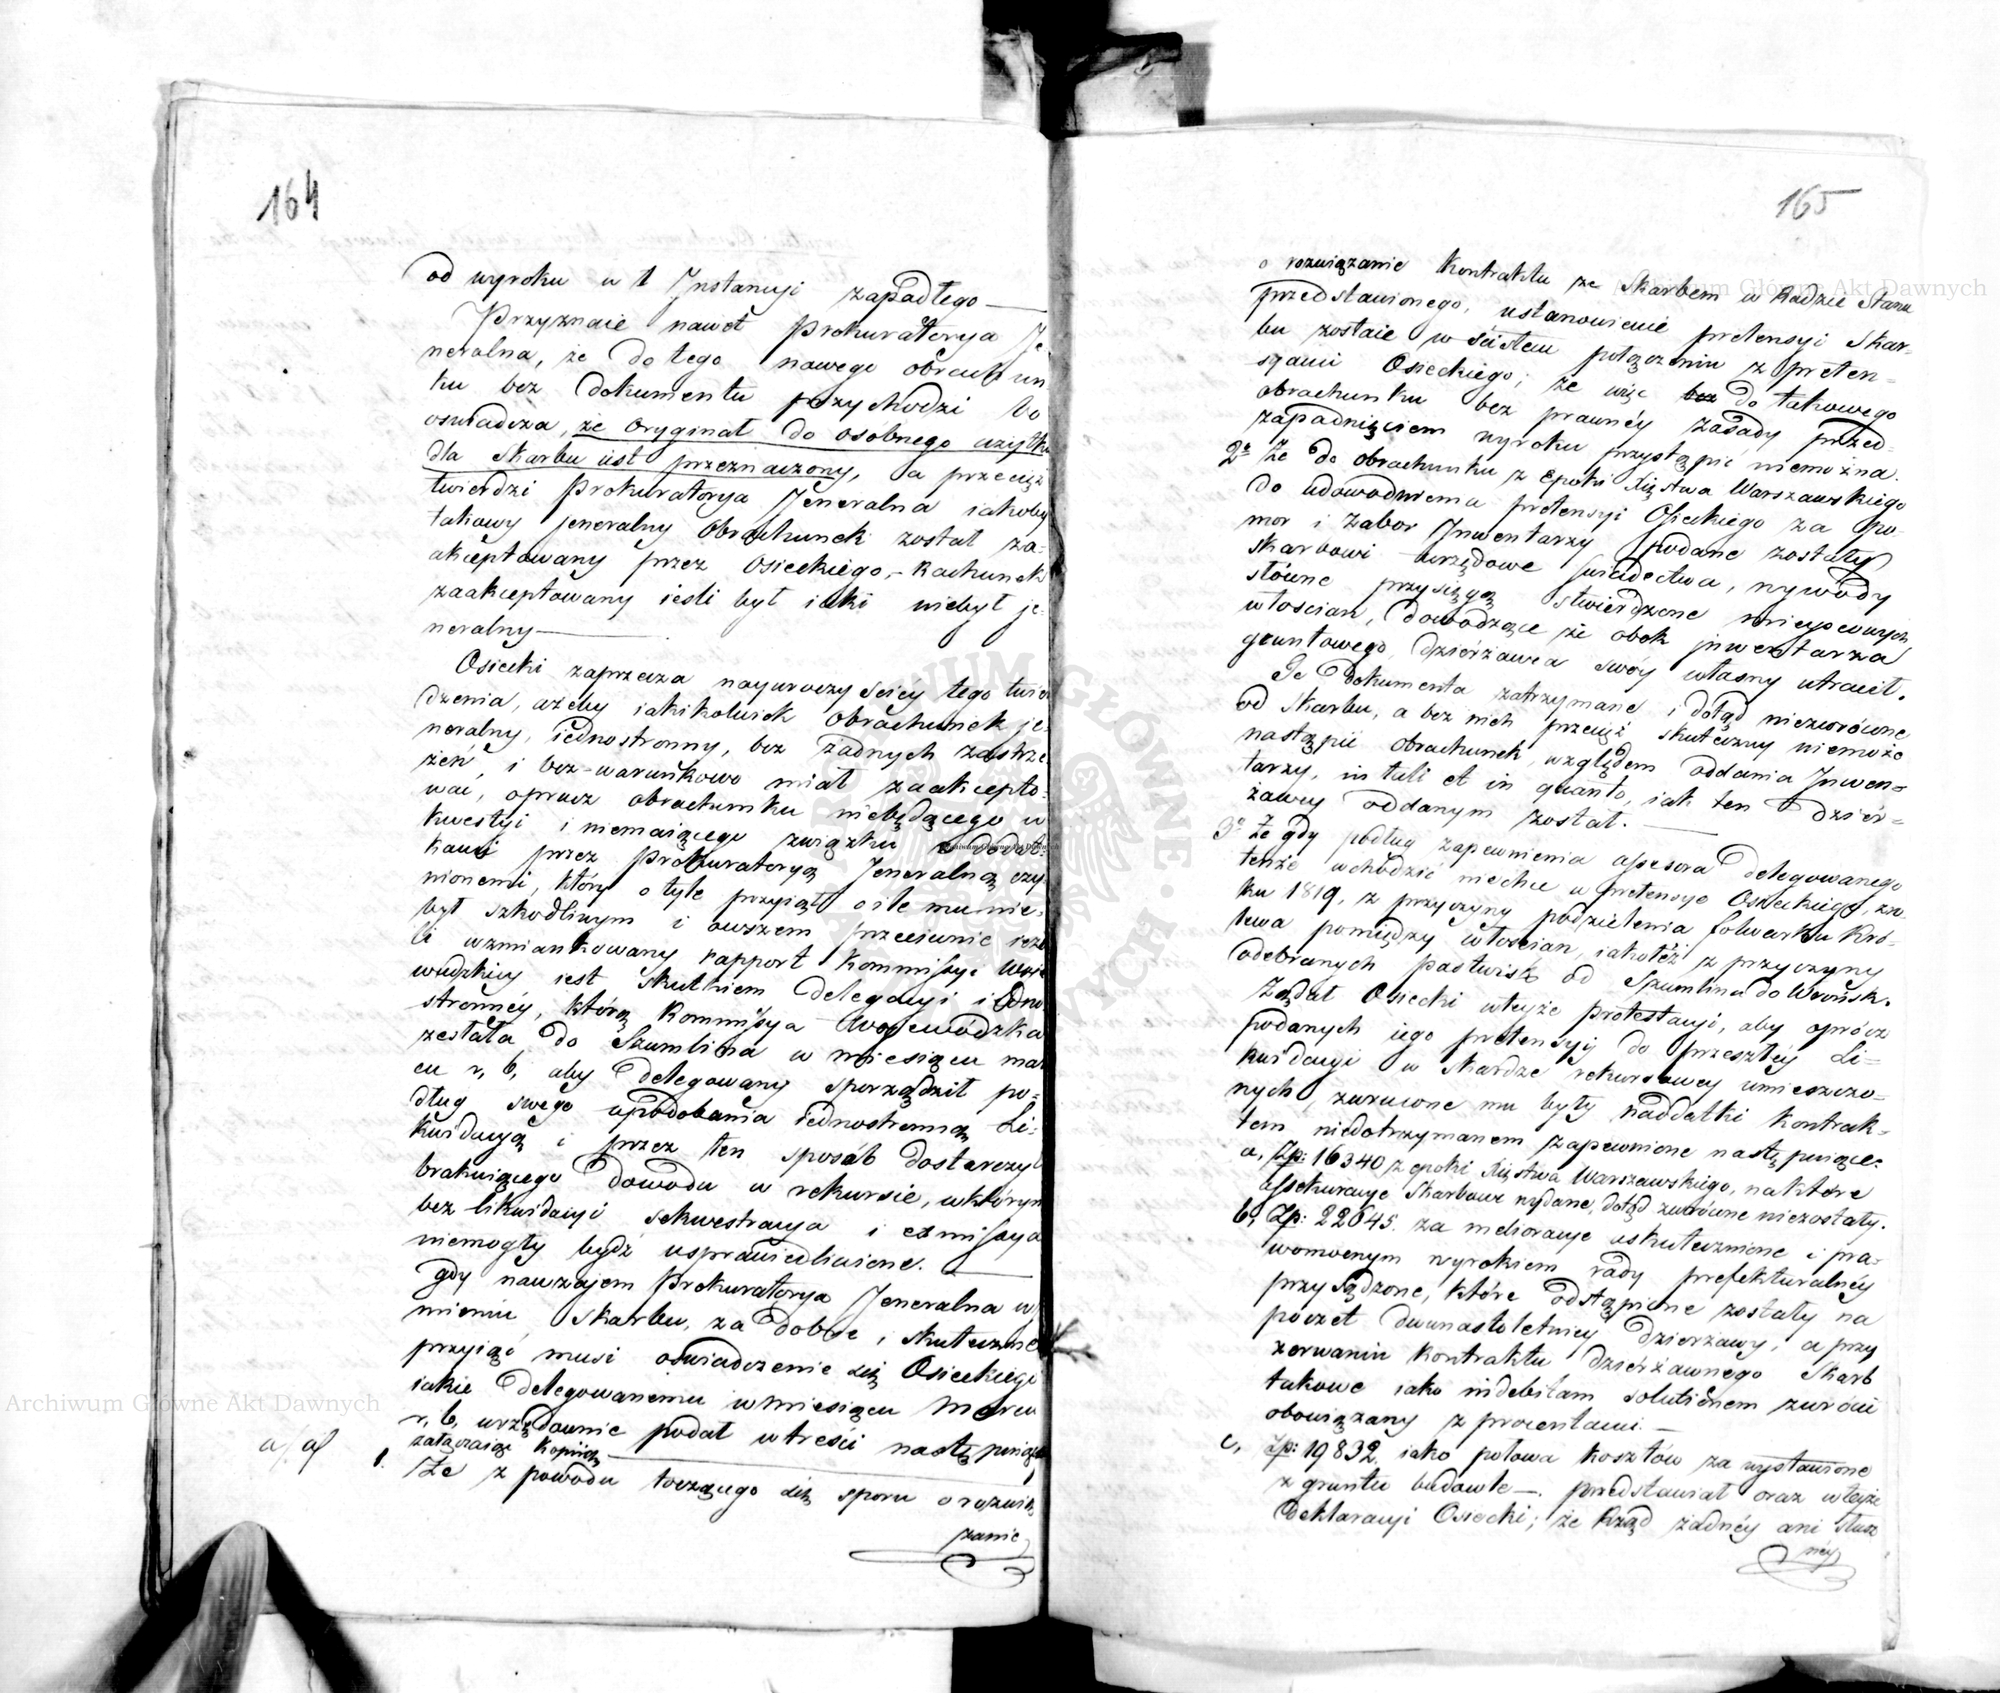 164
od wyroku w 1 Jnstancyi zapadłego —
Przyznaie nawet Prokuratorya Je-
neralna, że do tego nowego obrachun
ku bez dokumentu przychodzi bo
oswiadcza, że oryginał do osobnego użytku
dla Skarbu iest przeznaczony, a przecież
twierdzi Prokuratorya Jeneralna iakoby
takowy jeneralny obrachunek został za-
akceptowany przez Osieckiego, – Rachunek
zaakceptowany ieśli był iaki niebył je-
neralny —
Osiecki zaprzecza nayuroczyściéy tego twier
dzenia, ażeby iakikolwiek obrachunek je-
neralny, iednostronny, bez żadnych zastrze-
żeń, i bez-warunkowo miał zaakcepto-
wać, oprócz obrachunku niebędącego w
kwestyi i niemaiącego związku z dodat-
kami przez Prokuratoryą Jeneralną czy-
nionemi, który o tyle przyiął o ile mu nie-
był szkodliwym i owszem przeciwnie ieże
li wzmiankowany rapport Kommissyi Woie
wódzkiey iest skutkiem delegacyi iedno
stronnéy, którą Kommissya Wojewódzka
zesłała do Szumlina w miesiącu mar
cu r, b, aby delegowany sporządził po-
dług swego upodobania iednostronną Li-
kwidacyą i przez ten sposób dostarczył
brakuiącego dowodu w rekursie, w którym
bez likwidacyi sekwestracya i exmissya
niemogły bydź usprawiedliwione. —
Gdy nawzajem Prokuratorya Jeneralna w i
mieniu Skarbu, za dobre i skuteczne
przyiąć musi oświadczenie się Osieckiego
iakie Delegowanemu w miesiącu Marcu
r, b, urzędownie podał w treści następuiące
a/. a/ załączaiąc kopiią —
1. Że z powodu toczącego się sporu o rozwią
zanie
165
o rozwiązanie Kontraktu ze Skarbem w Radzie Stanu
przedstawionego, ustanowienie pretensyi Skar-
bu zostaie w ścisłem połączeniu z preten-
syami Osieckiego; że więc do takowego
obrachunku bez prawnéy zasady przed-
zapadnięciem wyroku przystąpić niemożna.
2° Że do obrachunku z epoki Xięstwa Warszawskiego
do udowodnienia pretensyi Osieckiego za po-
mor i zabor Jnwentarzy podane zostały
Skarbowi urzędowe świadectwa, wywody
słówne przysięgą stwierdzone mieyscowych
włościan, dowodzące że obok jnwentarza
gruntowego, dzierżawca swóy własny utracił.
Te Dokumenta zatrzymane i dotąd niezwrócone
od Skarbu, a bez nich przecież skuteczny niemoże
nastąpić obrachunek, względem oddania Jnwen-
tarzy, in tali et in quanto, iak ten Dzier-
żawcy oddanym został. —
3° Że gdy podług zapewnienia assesora delegowanego
tenże wchodzić niechce w pretensye Osieckiego, z ro-
ku 1819, z przyczyny podzielenia folwarku Kró-
lewa pomiędzy włościan, iakoteż z przyczyny
odebranych pastwisk od Szumlina do Wrońsk.
Żądał Osiecki w teyże protestacyi, aby oprócz
podanych iego pretensyi do przeszłéy Li-
kwidacyi w Skardze rekursowey umieszczo-
nych, zwrócone mu były naddatki Kontrak-
tem niedotrzymanem zapewnione następuiące:
a, Zp: 16340 z epoki Xięstwa Warszawskiego, na które
assekuracye Skarbowe wydane, dotąd zwrócone niezostały.
b, Zp: 22645. za melioracye uskutecznione i pra-
womocnym wyrokiem rady prefekturalnéy
przysądzone, które odstąpione zostały na
poczet dwunastoletniey dzierżawy, a przy
zerwaniu Kontraktu dzierżawnego Skarb
takowe iako indebitam solutionem zwrócić
obowiązany z procentami. —
c, Zp: 19832. iako połowa kosztów za wystawione
z gruntu budowle —. przedstawiał oraz w teyże
Deklaracyi Osiecki; że Rząd żadnéy ani słusz
néy